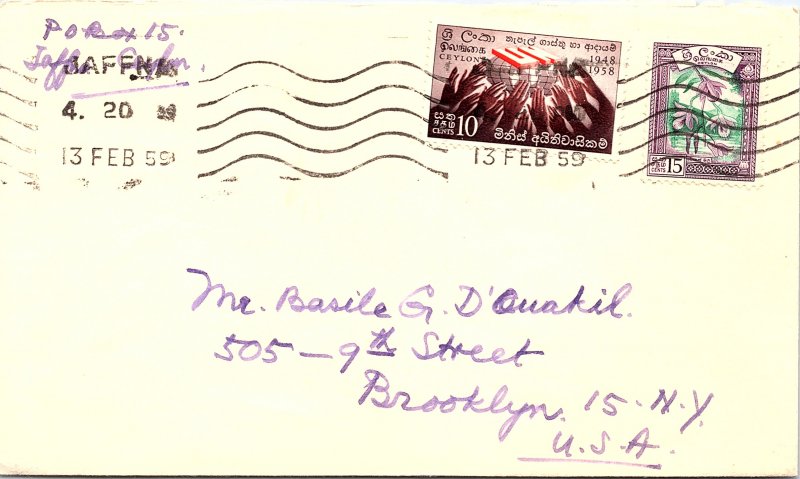 P O Box 15.
Jaffna Ceylon.
JAFFNA
4. 20
13 FEB 59
ශ්‍රී ලංකා තැපැල් ගාස්තු හා ආදායම්
இலங்கை
CEYLON
1948
1958
සත
சதம்
CENTS 10
මිනිස් අයිතිවාසිකම්
13 FEB 59
ශ්‍රී ලංකා
இலங்கை
CENTS 15
Mr. Basile G. D'Ouakil.
505 - 9th Street
Brooklyn. 15. N.Y.
U.S.A.